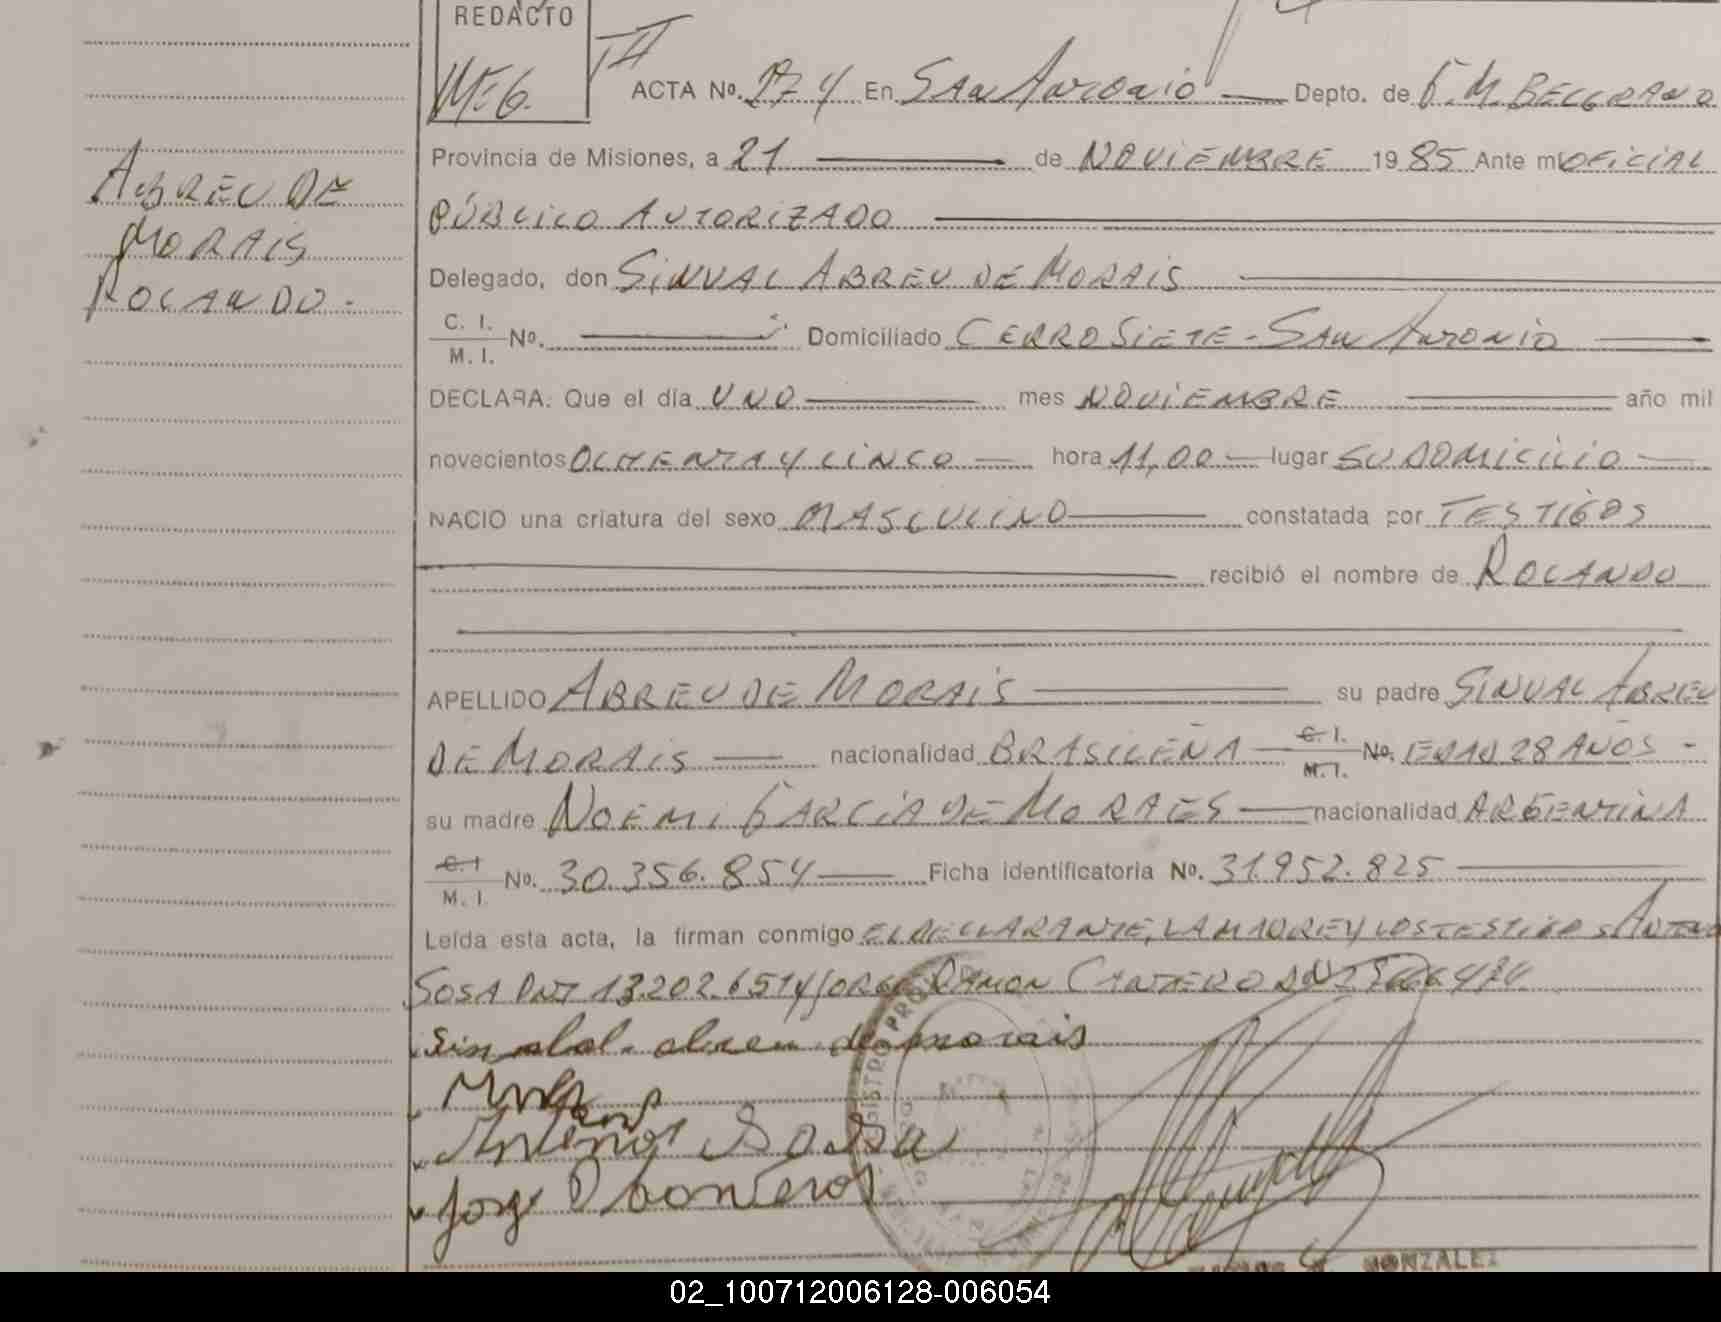 REDACTO
M.G.
T II
ACTA No. 174 En SAN ANTONIO Depto. de G. M. BELGRANO
Provincia de Misiones, a 21 de NOVIEMBRE 1985 Ante mi OFICIAL
PÚBLICO AUTORIZADO
ABREU DE
MORAIS
ROLANDO.-
Delegado, don SINVAL ABREU DE MORAIS
C. I.
M. I. No. Domiciliado CERRO SIETE - SAN ANTONIO
DECLARA: Que el día UNO mes NOVIEMBRE año mil
novecientos OCHENTA Y CINCO hora 11,00 lugar SU DOMICILIO
NACIO una criatura del sexo MASCULINO constatada por TESTIGOS
recibió el nombre de ROLANDO
APELLIDO ABREU DE MORAIS su padre SINVAL ABREU
DE MORAIS nacionalidad BRASILEÑA C. I. M. I. No. EDAD 28 AÑOS -
su madre NOEMI GARCÍA DE MORAES nacionalidad ARGENTINA
C. I
M. I. No. 30.356.854 Ficha identificatoria No. 31.952.825
Leída esta acta, la firman conmigo EL DECLARANTE, LA MADRE Y LOS TESTIGOS
SOSA DNI 13.202.651 Y JORGE RAMON CANTERO DNI
abreu de morais
Sosa
Jorge
GONZALEZ
02_100712006128-006054